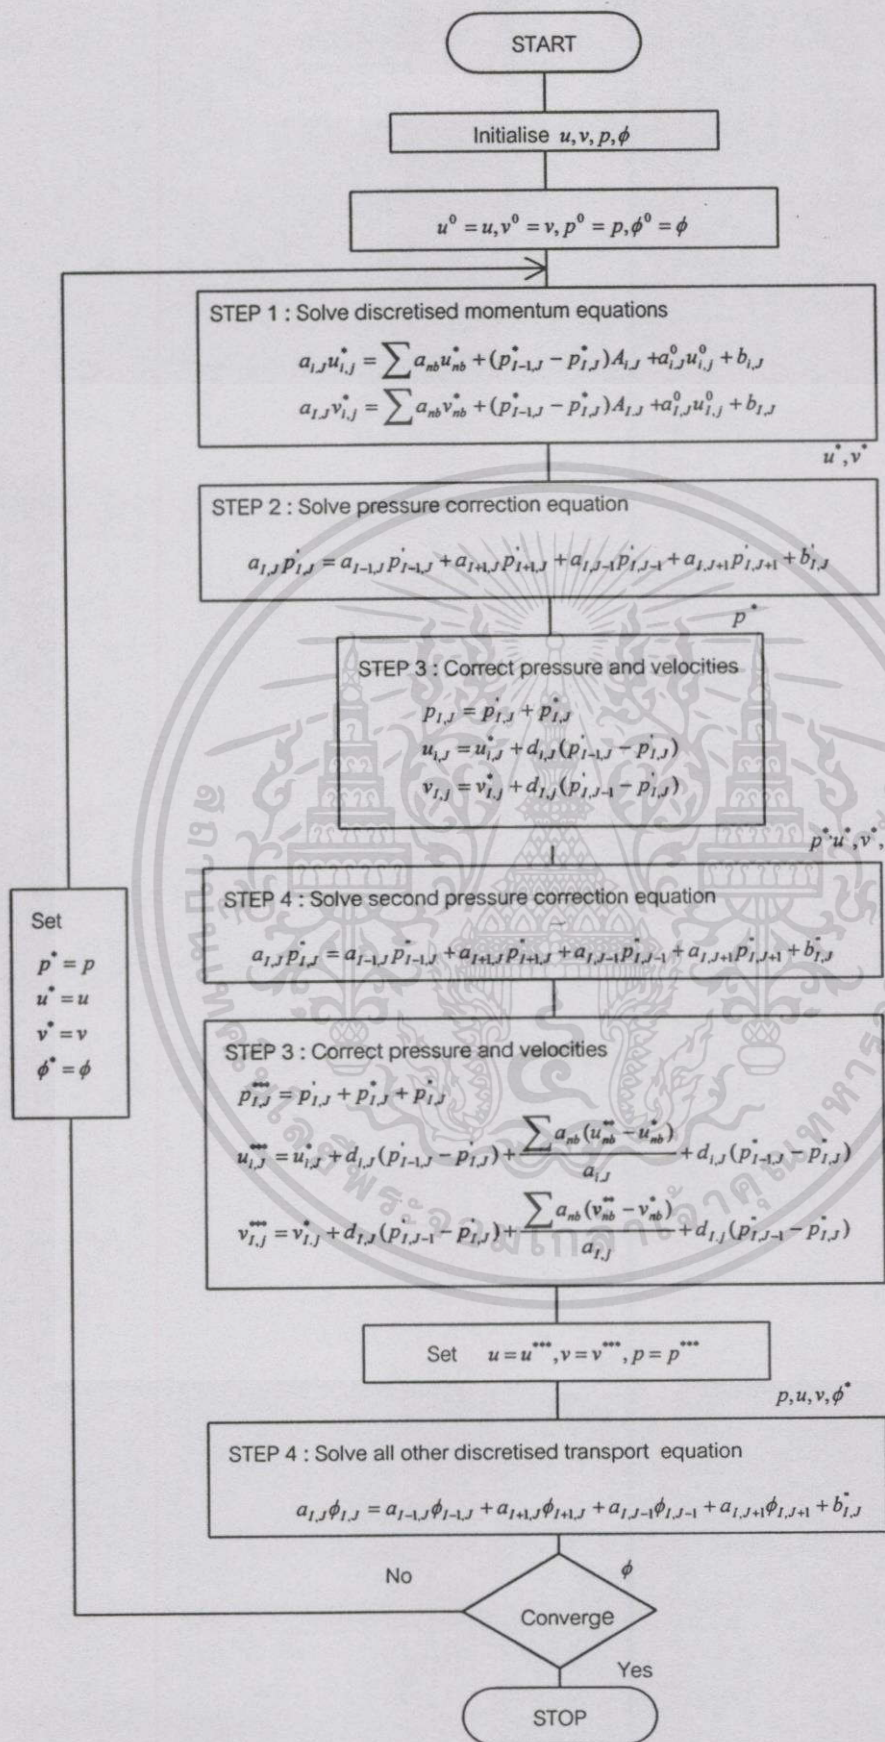 START
Initialise u,v,p,ϕ
u⁰ = u, v⁰ = v, p⁰ = p, ϕ⁰ = ϕ
STEP 1 : Solve discretised momentum equations
a_{i,J} u*_{i,j} = ∑ a_{nb} u*_{nb} + (p*_{I-1,J} − p*_{I,J}) A_{i,J} + a⁰_{i,J} u⁰_{i,j} + b_{i,J}
a_{I,J} v*_{i,j} = ∑ a_{nb} v*_{nb} + (p*_{I-1,J} − p*_{I,J}) A_{I,J} + a⁰_{I,J} u⁰_{I,j} + b_{I,J}
u*, v*
STEP 2 : Solve pressure correction equation
a_{I,J} p'_{I,J} = a_{I-1,J} p'_{I-1,J} + a_{I+1,J} p'_{I+1,J} + a_{I,J-1} p'_{I,J-1} + a_{I,J+1} p'_{I,J+1} + b'_{I,J}
p*
STEP 3 : Correct pressure and velocities
p_{I,J} = p'_{I,J} + p*_{I,J}
u_{i,J} = u*_{i,J} + d_{i,J} (p'_{I-1,J} − p'_{I,J})
v_{I,j} = v*_{I,j} + d_{I,j} (p'_{I,J-1} − p'_{I,J})
p*, u*, v*,
STEP 4 : Solve second pressure correction equation
a_{I,J} p"_{I,J} = a_{I-1,J} p"_{I-1,J} + a_{I+1,J} p"_{I+1,J} + a_{I,J-1} p"_{I,J-1} + a_{I,J+1} p"_{I,J+1} + b"_{I,J}
Set
p* = p
u* = u
v* = v
ϕ* = ϕ
STEP 3 : Correct pressure and velocities
p***_{I,J} = p'_{I,J} + p*_{I,J} + p"_{I,J}
u***_{i,J} = u*_{i,J} + d_{i,J} (p'_{I-1,J} − p'_{I,J}) + ∑ a_{nb} (u**_{nb} − u*_{nb}) / a_{i,J} + d_{i,J} (p"_{I-1,J} − p"_{I,J})
v***_{I,j} = v*_{I,j} + d_{I,J} (p'_{I,J-1} − p'_{I,J}) + ∑ a_{nb} (v**_{nb} − v*_{nb}) / a_{I,j} + d_{I,j} (p"_{I,J-1} − p"_{I,J})
Set u = u***, v = v***, p = p***
p, u, v, ϕ*
STEP 4 : Solve all other discretised transport equation
a_{I,J} ϕ_{I,J} = a_{I-1,J} ϕ_{I-1,J} + a_{I+1,J} ϕ_{I+1,J} + a_{I,J-1} ϕ_{I,J-1} + a_{I,J+1} ϕ_{I,J+1} + b"_{I,J}
ϕ
No
Converge
Yes
STOP